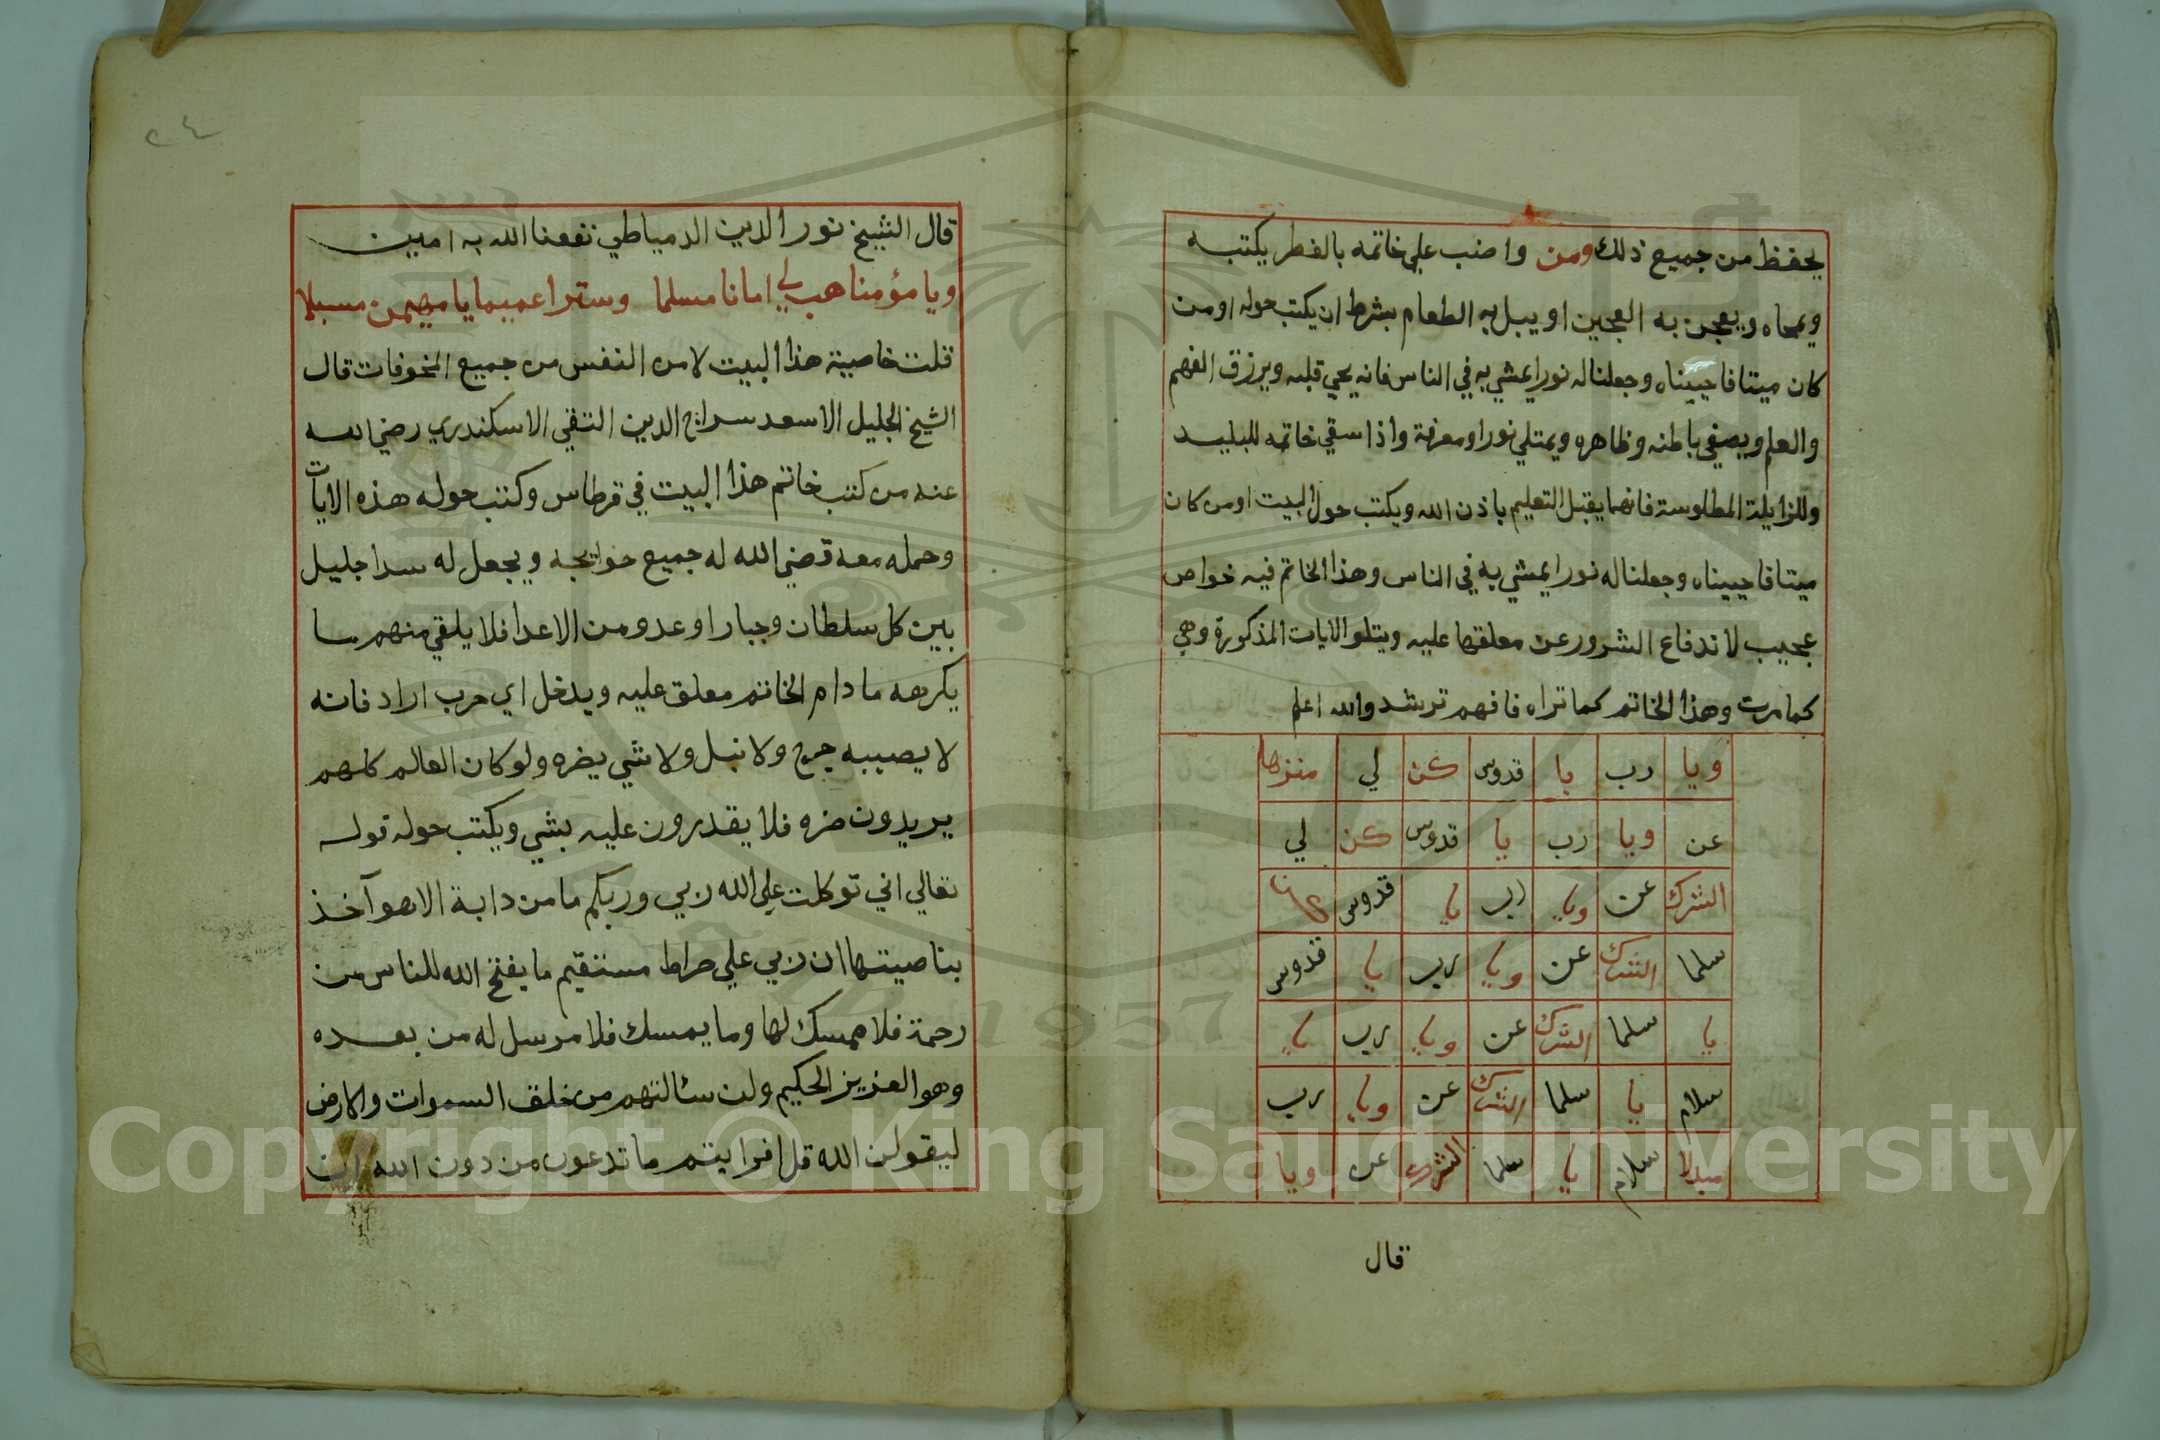 يحفظ من جميع ذلك ومن واضب علي خاتمه بالفطر يكتبه
ويمحاه ويعجن به العجين او يبل به الطعام بشرط ان يكتب حوله اومن
كان ميتا فاحييناه وجعلنا له نورا يمشي به في الناس فانه يحي قلبه ويرزق الفهم
والعلم ويصفي باطنه وظاهره ويمتلي نورا ومعرفة واذا سقي خاتمه للبليد
وللزايلة المطلوسة فانهما يقبل التعليم باذن الله ويكتب حول البيت اومن كان
ميتا فاحييناه وجعلنا له نورا يمشي به في الناس وهذا الخاتم فيه خواص
عجيب لاندفاع الشرور عن معلقها عليه ويتلو الايات المذكورة وهي
كما مرت وهذا الخاتم كما تراه فافهم ترشد والله اعلم
ويا رب يا قدوس كن لي منزها
عن ويا رب يا قدوس كن لي
الشرك عن ويا رب يا قدوس
سلما الشرك عن ويا رب يا قدوس
يا سلما الشرك عن ويا رب يا
سلام يا سلما الشرك عن ويا رب
مبدلا سلام يا سلما الشرك عن ويا
قال
٢٤
قال الشيخ نور الدين الدمياطي نفعنا الله به امين
ويا مؤمنا هب لي امانا مسلما وسترا عميما يا مهيمن مسبلا
قلت خاصية هذا البيت لامن النفس من جميع المخوفات قال
الشيخ الجليل الاسعد سراج الدين التقي الاسكندري رضي الله
عنه من كتب خاتم هذا البيت في قرطاس وكتب حوله هذه الايات
وحمله معه قضي الله له جميع حوائجه ويجعل له سدا جليل
بين كل سلطان وجبار اوعدو من الاعدا فلا يلقي منهم ما
يكرهه ما دام الخاتم معلق عليه ويدخل اي حرب اراد فانه
لا يصيبه جرح ولا نبل ولا شي يضره ولو كان العالم كلهم
يريدون ضره فلا يقدرون عليه بشي ويكتب حوله قوله
تعالي اني توكلت علي الله ربي وربكم ما من دابة الا هو آخذ
بناصيتها ان ربي علي صراط مستقيم ما يفتح الله للناس من
رحمة فلا ممسك لها وما يمسك فلا مرسل له من بعده
وهو العزيز الحكيم ولئن سئالتهم من خلق السموات والارض
ليقولن الله قل افرايتم ما تدعون من دون الله ان
Copyright © King Saud University
1957